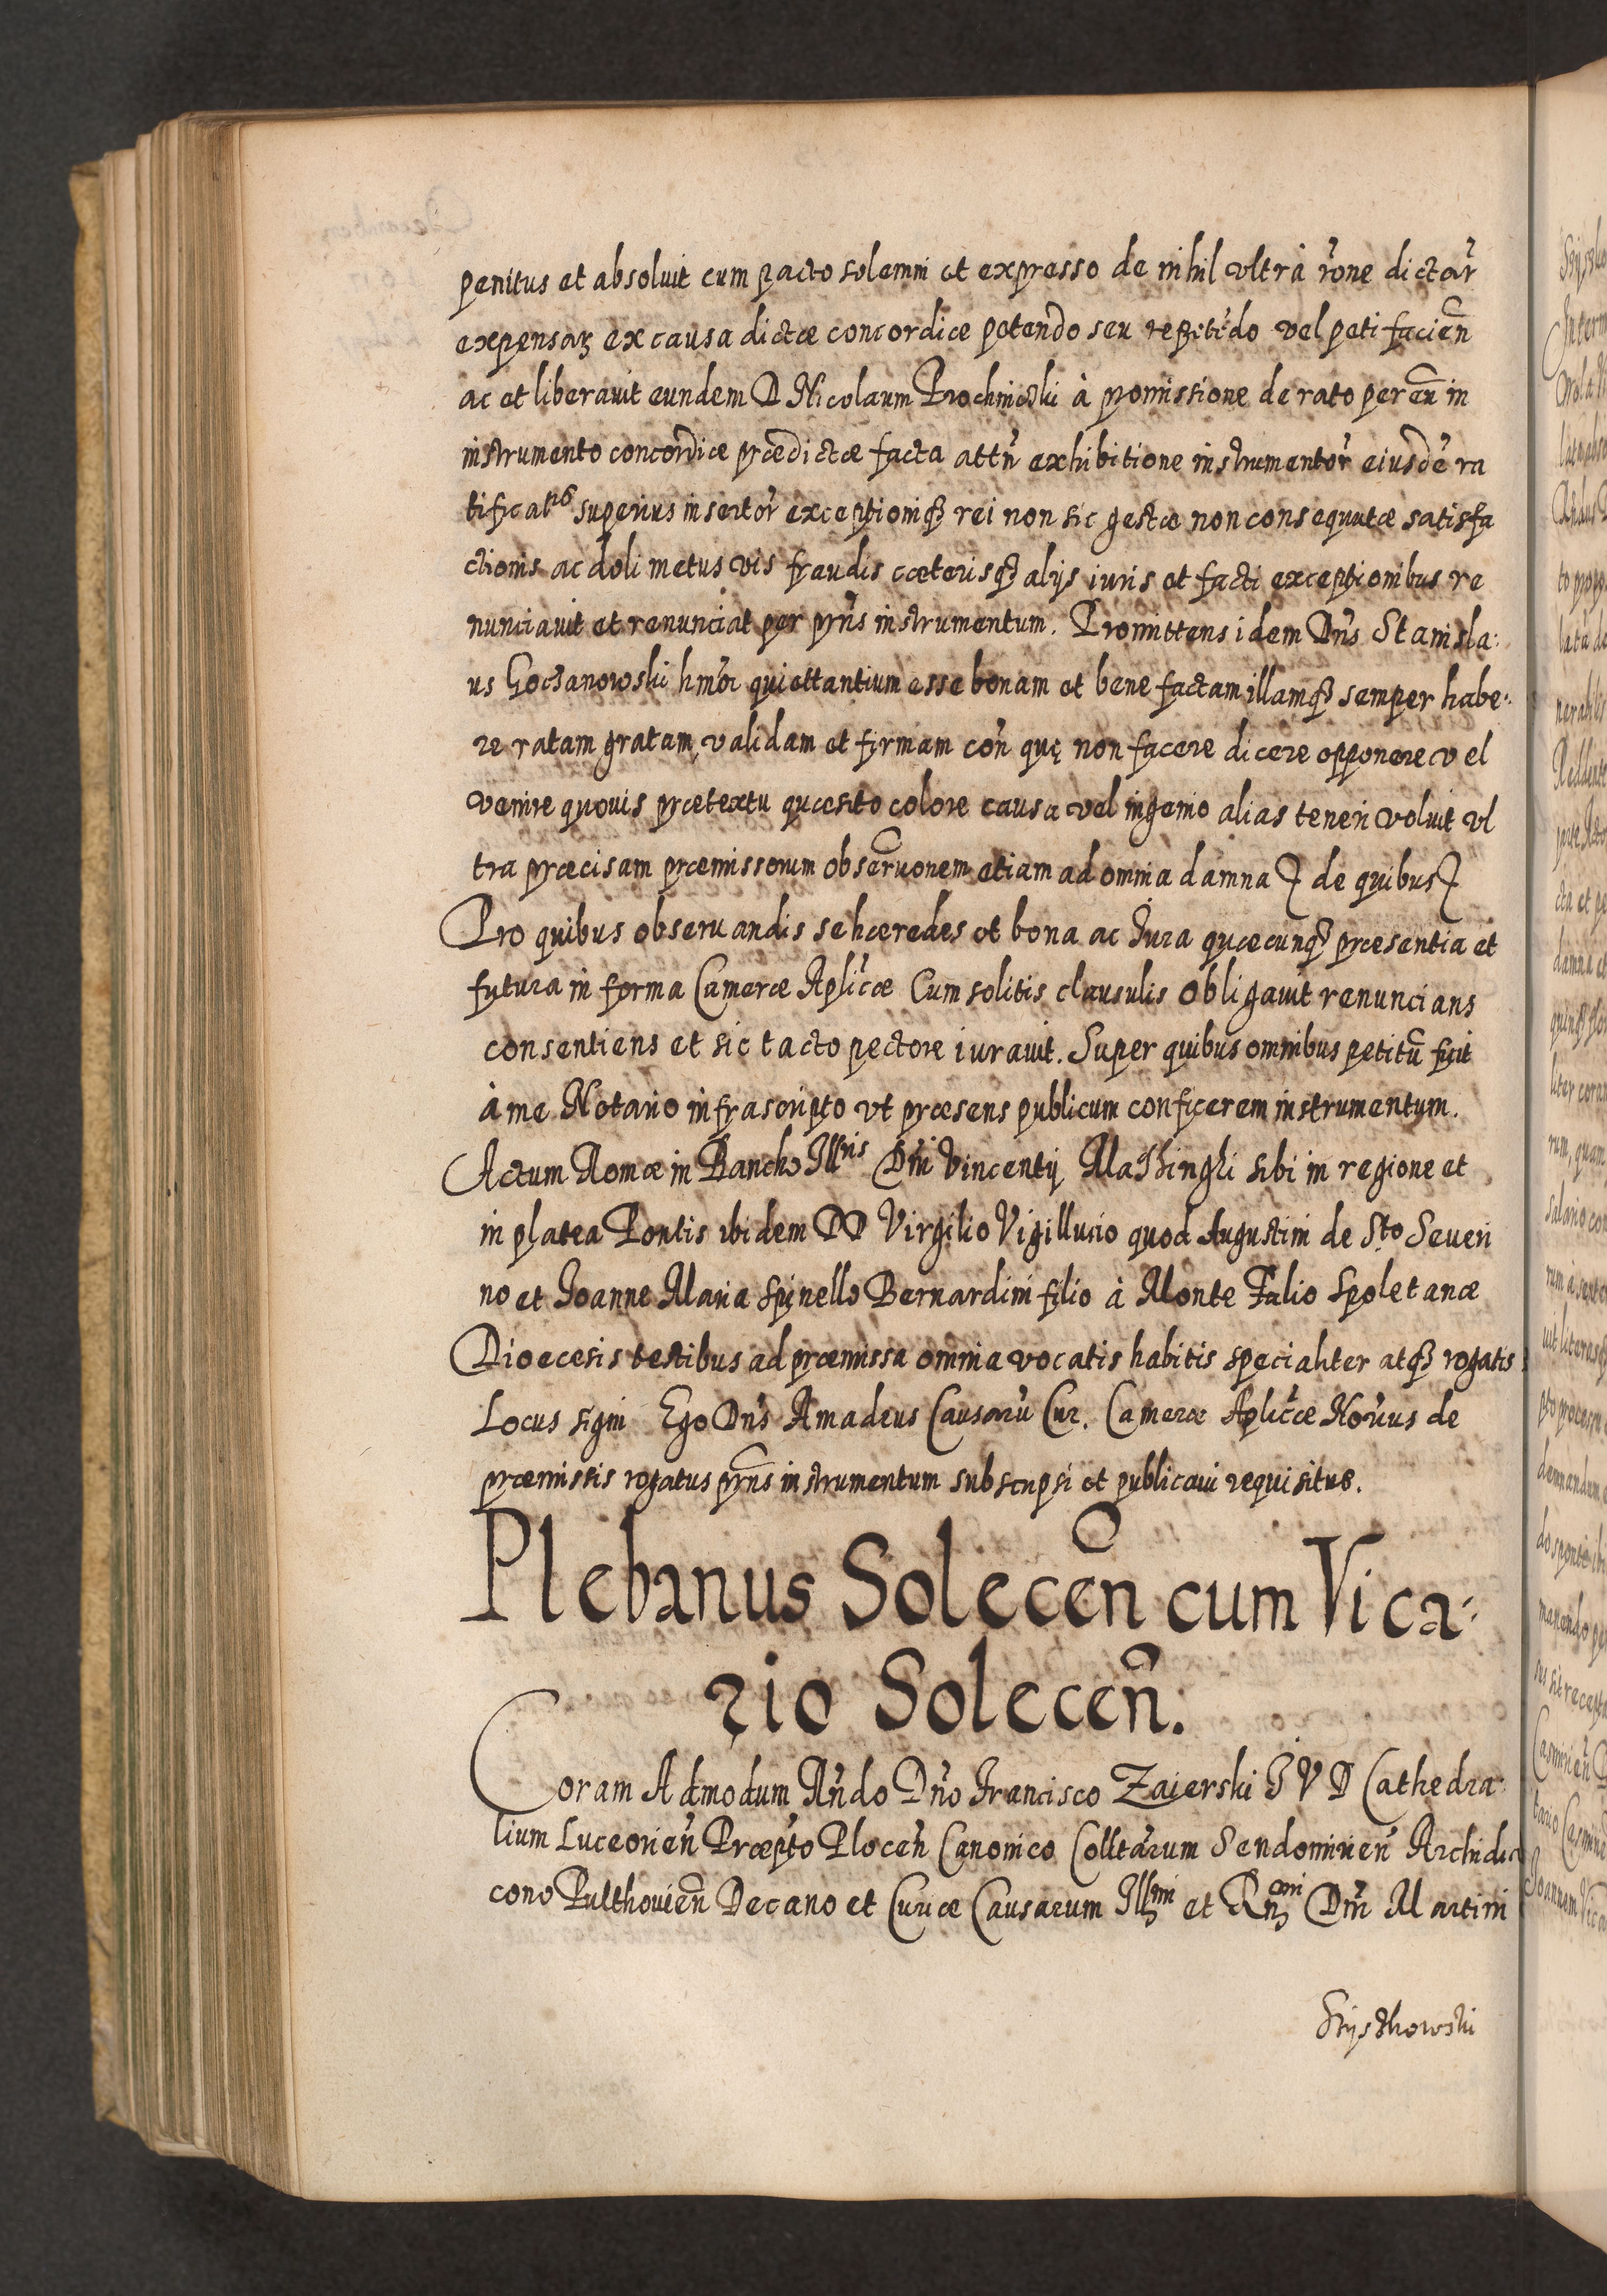 penitus et absoluit cum pacto solemni et expresso de nihil vltrà rõne dictar̃
expensaꝝ ex causa dictæ concordiæ petendo seu repetẽdo vel peti facieñ
ac et liberauit eundem D Nicolaum Prochniczki à promissione de rato per eũ in
instrumento concordiæ prædictæ facta atttñ exhibitione instrumentor̃ eiusdẽ ra
tificatⁿⁱˢ superius insertor̃ exceptioniq́ʒ rei non sic gestæ non consequutæ satisfa
ctionis ac doli metus vis fraudis cæterisq́ʒ alijs iuris et facti exceptionibus re
nunciauit et renunciat per pr̃ns instrumentum. Promittens idem Dñs Stanisla:
us Gochanowski hmõi quiettantium esse bonam et bene factam illamq́ʒ semper habe:
re ratam gratam, validam et firmam cõn quę non facere dicere opponere vel
venire quouis prætextu quæsito colore causa vel ingenio alias teneri voluit vl
tra præcisam præmissorum obseruonem etiam ad omnia damna de quibus
Pro quibus obseruandis se hæredes et bona ac Jura quæcunq́ʒ præsentia et
futura in forma Cameræ Aplicæ Cum solitis clausulis obligauit renuncians
consentiens et sic tacto pectore iurauit. Super quibus omnibus petitũ fuit
à me Notario infrascripto vt præsens publicum conficerem instrumentum.
Actum Romæ in Bancho Illʳⁱˢ Dñi Vincentij Maschinghi sibi in regione et
in platea Pontis ibidem DD Virgilio Vigillucio quod Augustini de Sto Seueri
no et Joanne Maria Spinello Bernardini filio à Monte Falio Spoletanæ
Dioecesis testibus ad præmissa omnia vocatis habitis specialiter atq́ʒ rogatis
Locus signi Ego Dñs Amadeus Causarũ Cur. Cameræ Aplicæ Norius de
præmissis rogatus pr̃ns instrumentum subscripsi et publicaui requisitus.
Plebanus Soleceñ cum Vica:
rio Soleceñ.
Coram Admodum Rñdo Dño Francisco Zaierski J V D Cathedra:
lium Luceorieñ Præpto Ploceñ Canonico Colltarum Sendomirieñ Archidia
cono Pulthouieñ Decano et Curiæ Causarum Illᵐⁱ et Rñᵐⁱ Dñi Martini
Szyszkowski